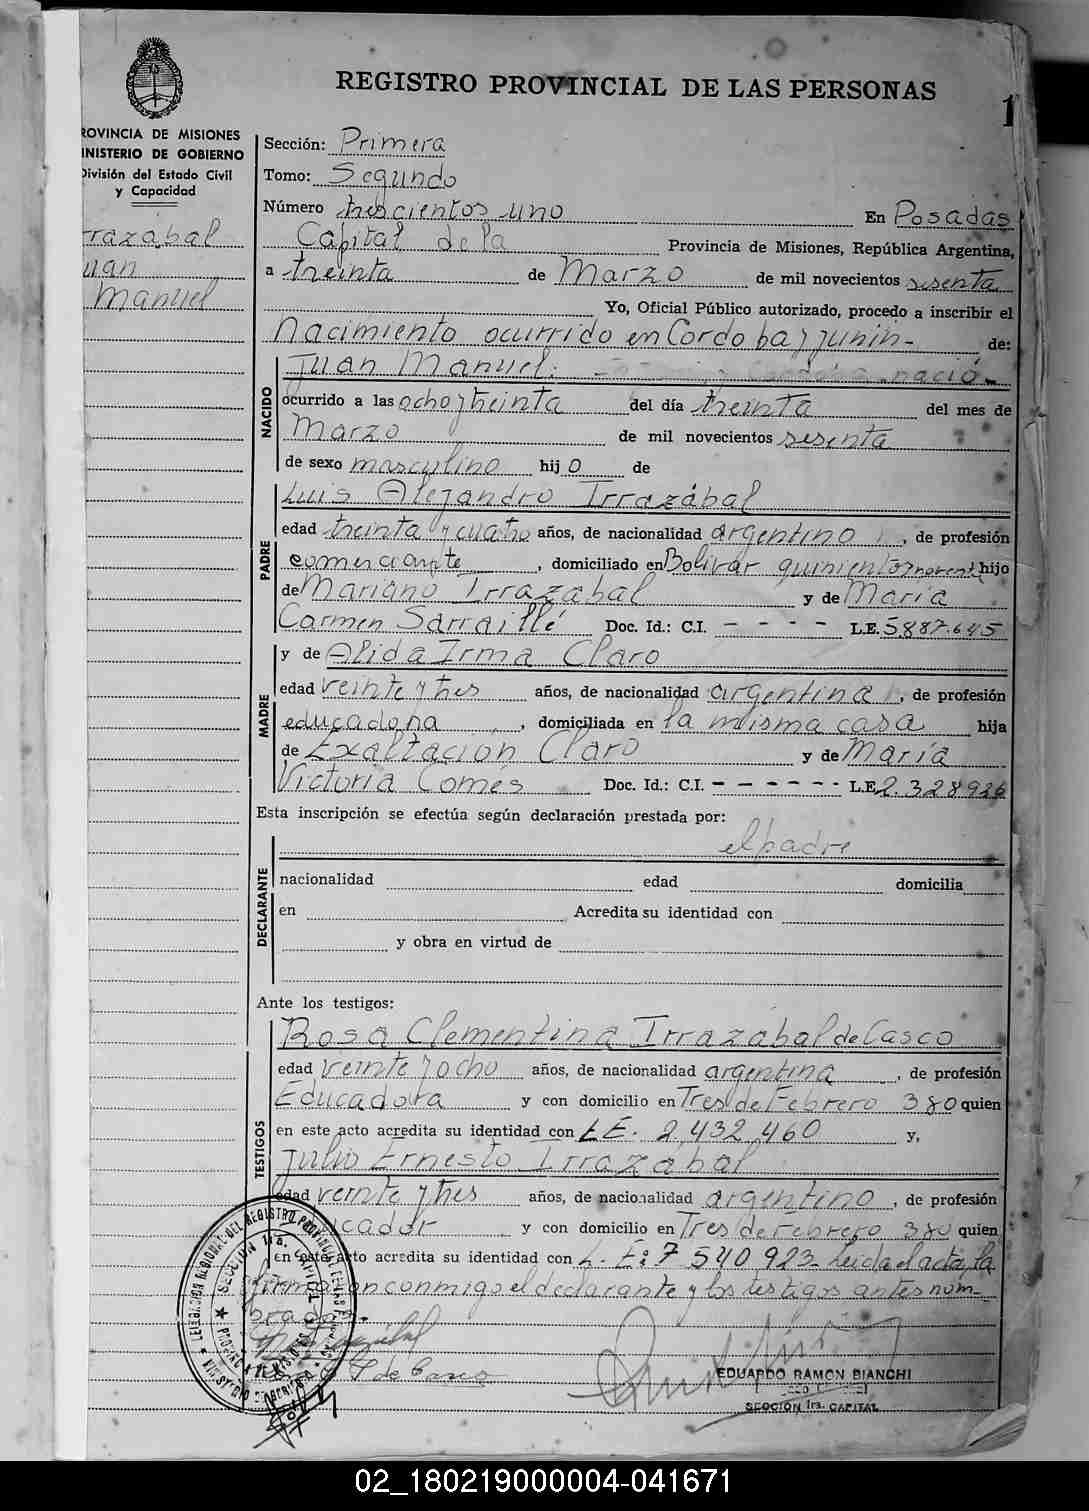 REGISTRO PROVINCIAL DE LAS PERSONAS
1
ROVINCIA DE MISIONES
INISTERIO DE GOBIERNO
División del Estado Civil
y Capacidad
rrazabal
uan
Manuel
Sección: Primera
Tomo: Segundo
Número trescientos uno En Posadas
Capital de la Provincia de Misiones, República Argentina,
a treinta de Marzo de mil novecientos sesenta
Yo, Oficial Público autorizado, procedo a inscribir el
Nacimiento ocurrido en Cordoba y Junin- de:
NACIDO
Juan Manuel: nació
ocurrido a las ocho y treinta del día treinta del mes de
Marzo de mil novecientos sesenta
de sexo masculino hij o de
PADRE
Luis Alejandro Irrazábal
edad treinta y cuatro años, de nacionalidad argentino, de profesión
comerciante, domiciliado en Bolivar quinientos noventa hijo
de Mariano Irrazabal y de María
Carmen Sarraillé Doc. Id.: C.I. - - - - L.E. 5.887.645
MADRE
y de Alida Irma Claro
edad veinte y tres años, de nacionalidad argentina, de profesión
educadora, domiciliada en la misma casa hija
de Exaltación Claro y de María
Victoria Comes Doc. Id.: C.I. - - - - - - L.E. 2.328926
Esta inscripción se efectúa según declaración prestada por:
DECLARANTE
el padre
nacionalidad edad domicilia
en Acredita su identidad con
y obra en virtud de
Ante los testigos:
TESTIGOS
Rosa Clementina Irrazábal de Casco
edad veinte y ocho años, de nacionalidad argentina, de profesión
Educadora y con domicilio en Tres de Febrero 380 quien
en este acto acredita su identidad con L.E. 2.432.460 y,
Julio Ernesto Irrazabal
edad veinte y tres años, de nacionalidad argentino, de profesión
icador y con domicilio en Tres de Febrero 380 quien
en este acto acredita su identidad con L. E: 7 540 923- Leida el acta, la
firmaron conmigo el declarante y los testigos antes nom-
brados
de Casco
EDUARDO RAMON BIANCHI
SECCION 1ra. CAPITAL
02_180219000004-041671